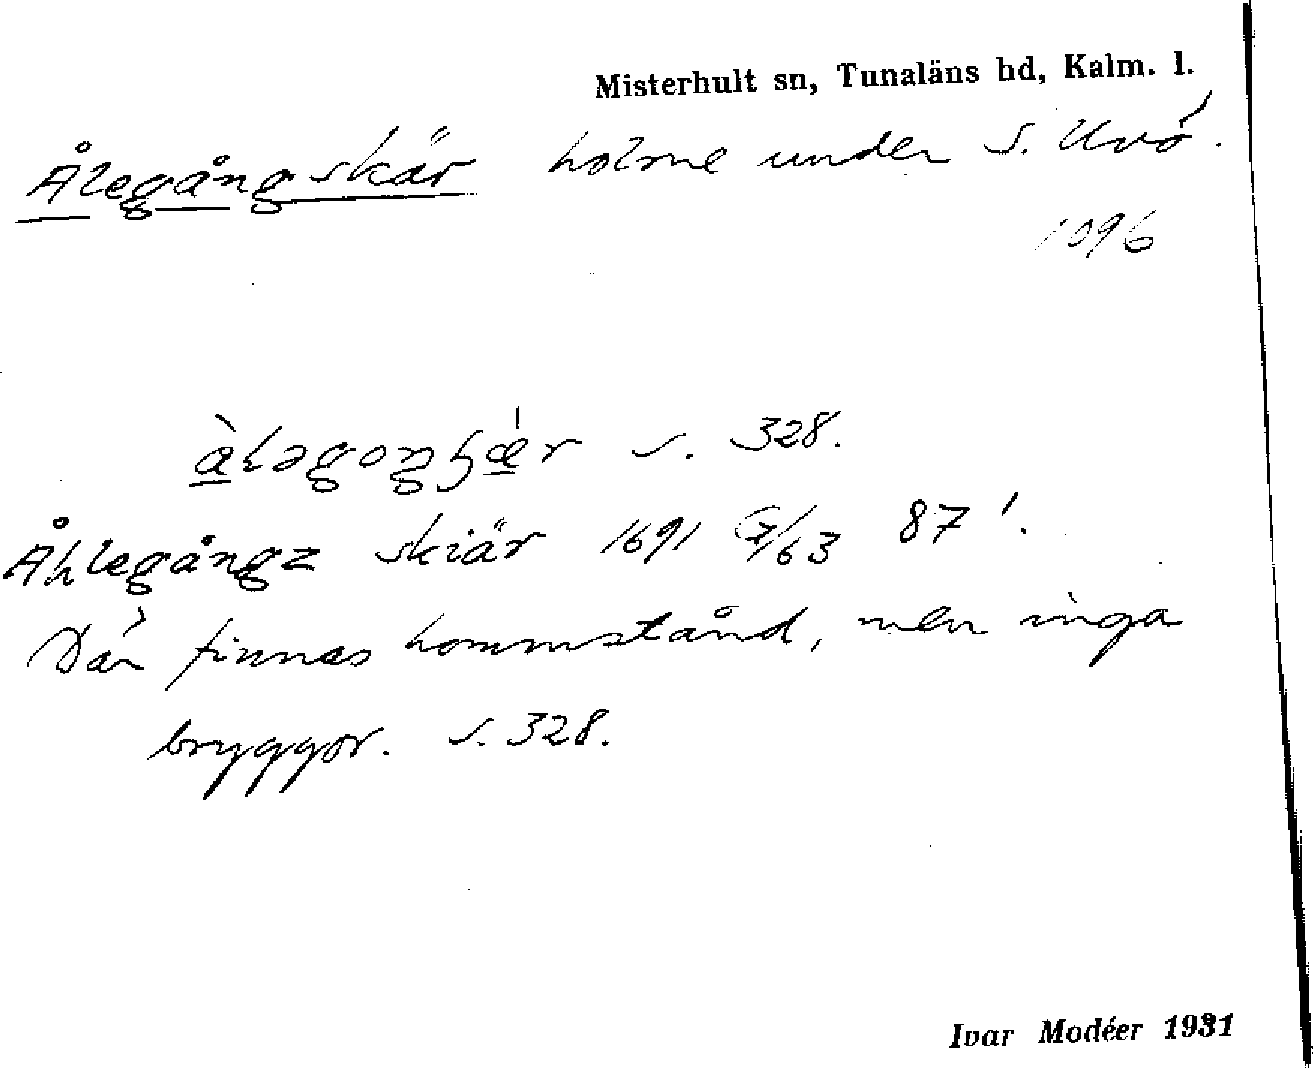 Misterhult sn, Tunaläns hd, Kalm. l.
Ålegångskär holme under S. Uvö.
1096
s. 328.
Åhlegångz skiär 1691 G7/63 87'.
Där finnas hommstånd, men inga
bryggor. s. 328.
Ivar Modéer 1931